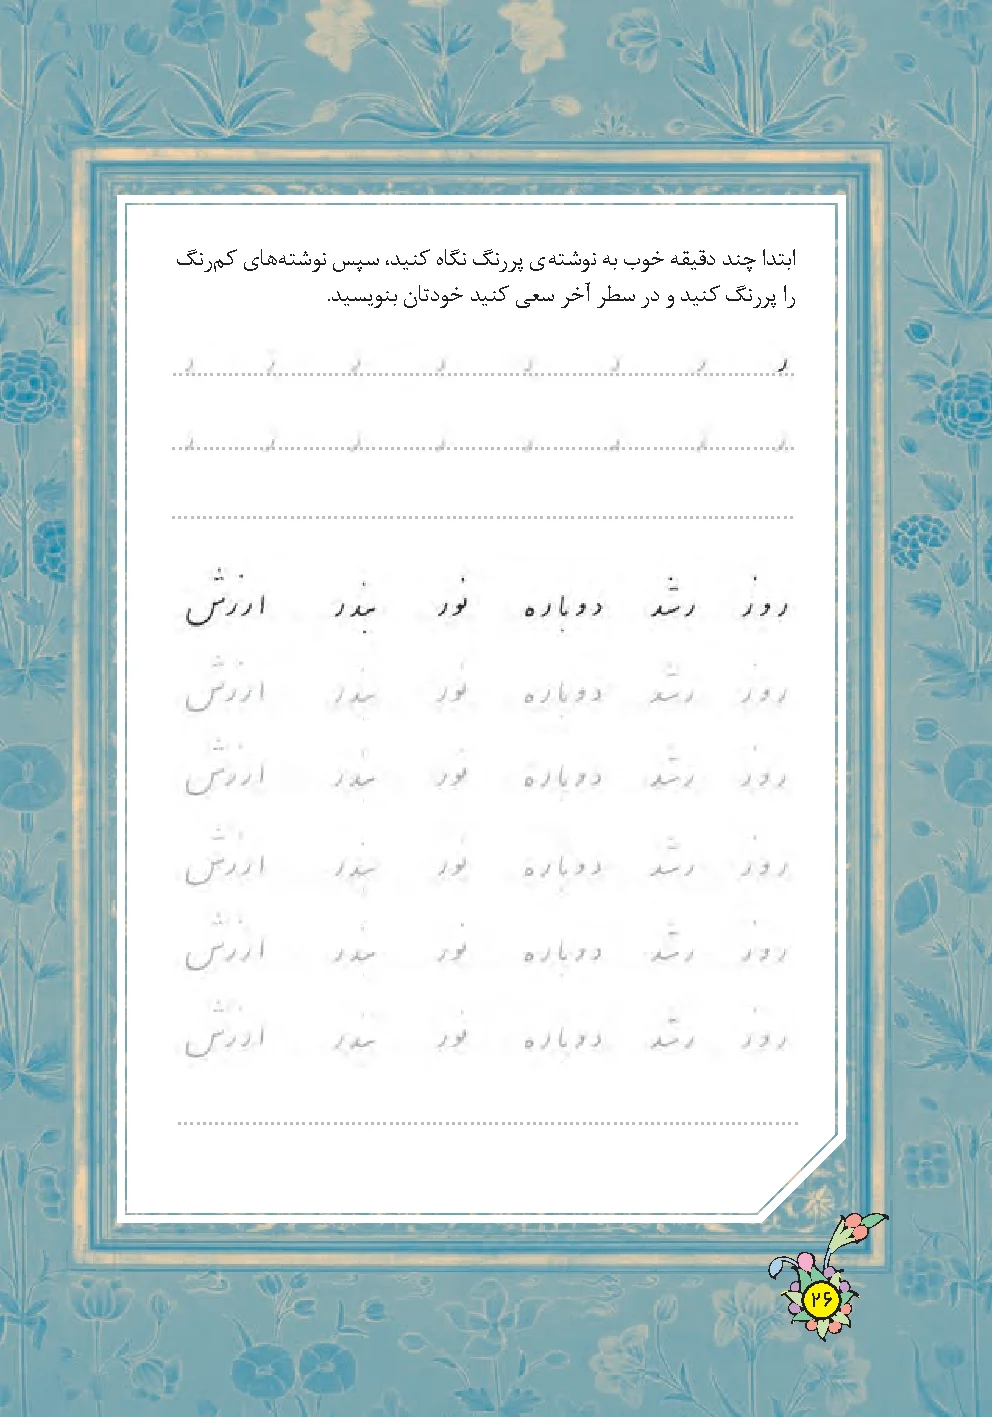 ابتدا چند دقیقه خوب به نوشته‌ی پررنگ نگاه کنید، سپس نوشته‌های کم‌رنگ
را پررنگ کنید و در سطر آخر سعی کنید خودتان بنویسید.
ر ر ر ر ر ر ر ر
ر ر ر ر ر ر ر ر
روز رشد دوباره نور بندر ارزش
روز رشد دوباره نور بندر ارزش
روز رشد دوباره نور بندر ارزش
روز رشد دوباره نور بندر ارزش
روز رشد دوباره نور بندر ارزش
روز رشد دوباره نور بندر ارزش
۲۶